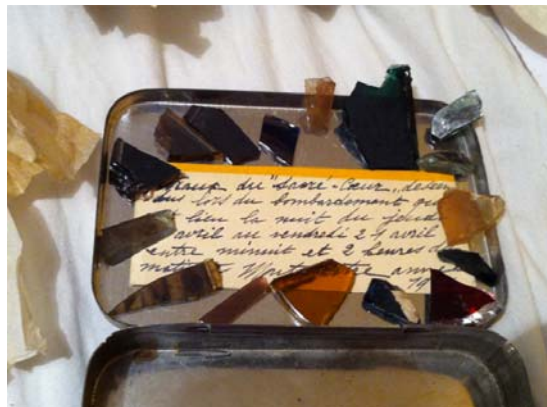 du "Sacré-Cœur, descen
lors du bombardement qui
lieu la nuit du jeudi
avril au vendredi 21 avril
entre minuit et 2 heures du
matin Montmartre année
19